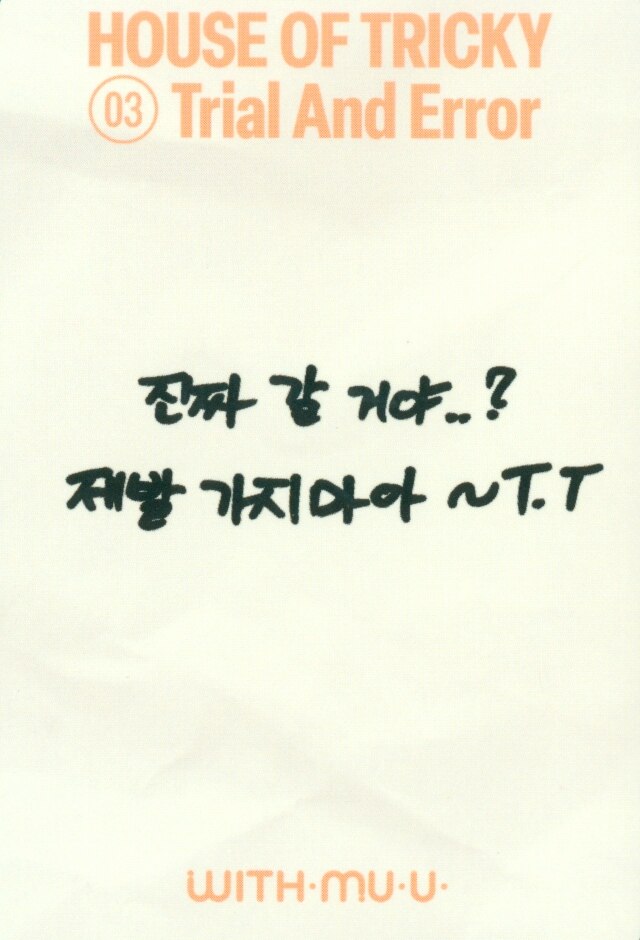 HOUSE OF TRICKY
03 Trial And Error
진짜 갈 거야..?
제발 가지마아 ~T.T
WITH·MU·U·